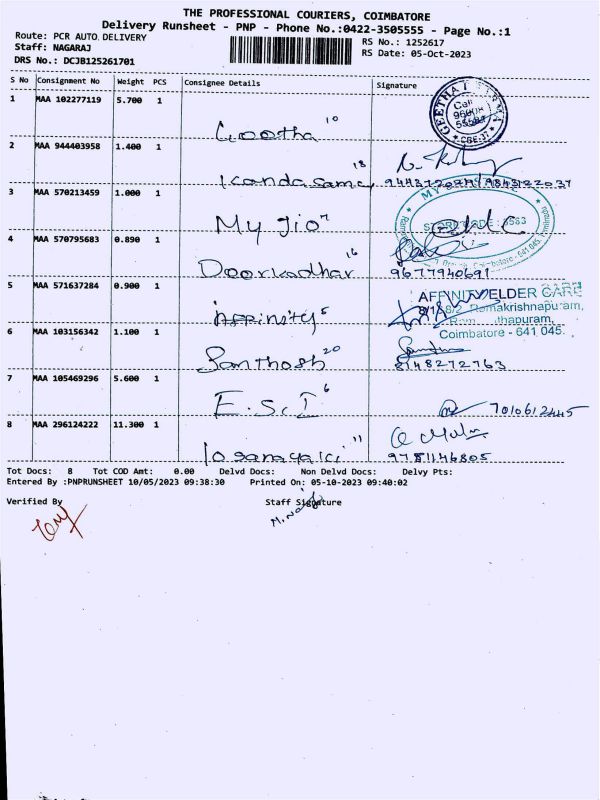 THE PROFESSIONAL COURIERS, COIMBATORE
Delivery Runsheet - PNP - Phone No.:0422-3505555 - Page No.:1
Route: PCR AUTO DELIVERY
RS No.: 1252617
Staff: NAGARAJ
RS Date: 05-Oct-2023
DRS No.: DCJB125261701
S No Consignment No Weight PCS Consignee Details Signature
1 MAA 102277119 5.700 1
Geetha 10
GEETHA PHARMA Cell CBE-37
2 MAA 944403958 1.400 1
Kandasamy 18
3 MAA 570213459 1.000 1
My Jio 7
4 MAA 570795683 0.890 1
Doorkadhar 16
9677940691
5 MAA 571637284 0.900 1
Affinity 5
AFFINITY ELDER CARE
Ramakrishnapuram,
Coimbatore - 641 045.
6 MAA 103156342 1.100 1
Santhosh 20
8148272763
7 MAA 105469296 5.600 1
E.S.I 6
7010612445
8 MAA 296124222 11.300 1
11
9751146805
Tot Docs: 8 Tot COD Amt: 0.00 Delvd Docs: Non Delvd Docs: Delvy Pts:
Entered By :PNPRUNSHEET 10/05/2023 09:38:30 Printed On: 05-10-2023 09:40:02
Verified By Staff Signature